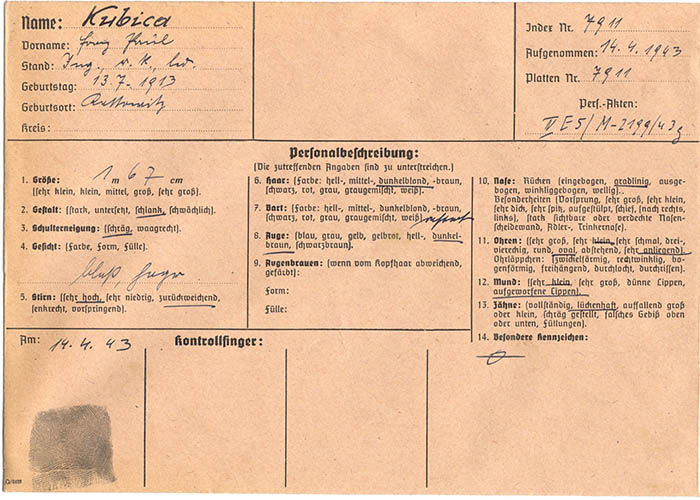 Name: Kubica
Vorname: Franz Paul
Stand: Ing., r. k., led.
Geburtstag: 13.7-1913
Geburtsort: Kattowitz
Kreis:
Index Nr. 7911
Aufgenommen: 14.4.1943
Platten Nr. 7911
Pers.-Akten:
II E5/M-2199/43g
Personalbeschreibung:
(Die zutreffenden Angaben sind zu unterstreichen.)
1. Größe: 1 m 67 cm
(sehr klein, klein, mittel, groß, sehr groß).
2. Gestalt: (stark, untersetzt, schlank, schwächlich).
3. Schulterneigung: (schräg, waagrecht).
4. Gesicht: (Farbe, Form, Fülle).
blaß, hager
5. Stirn: (sehr hoch, sehr niedrig, zurückweichend,
senkrecht, vorspringend).
6. Haar: (Farbe: hell-, mittel-, dunkelblond, -braun,
schwarz, rot, grau, graugemischt, weiß).
7. Bart: (Farbe: hell-, mittel-, dunkelblond, -braun,
schwarz, rot, grau, graugemischt, weiß)
8. Auge: (blau, grau, gelb, gelbrot, hell-, dunkel-
braun, schwarzbraun).
9. Augenbrauen: (wenn vom Kopfhaar abweichend,
gefärbt):
Form:
Fülle:
10. Nase: Rücken (eingebogen, gradlinig, ausge-
bogen, winkliggebogen, wellig).
Besonderheiten (Vorsprung, sehr groß, sehr klein,
sehr dick, sehr spitz, aufgestülpt, schief, (nach rechts,
links), stark sichtbare oder verdeckte Nasen-
scheidewand, Adler-, Trinkernase).
11. Ohren: (sehr groß, sehr klein, sehr schmal, drei-,
viereckig, rund, oval, abstehend, sehr anliegend).
Ohrläppchen: (zwickelförmig, rechtwinklig, bo-
genförmig, freihängend, durchlocht, durchrissen).
12. Mund: (sehr klein, sehr groß, dünne Lippen,
aufgeworfene Lippen).
13. Zähne: (vollständig, lückenhaft, auffallend groß
oder klein, schräg gestellt, falsches Gebiß oben
oder unten, Füllungen).
14. Besondere Kennzeichen:
Am: 14. 4. 43
Kontrollfinger: